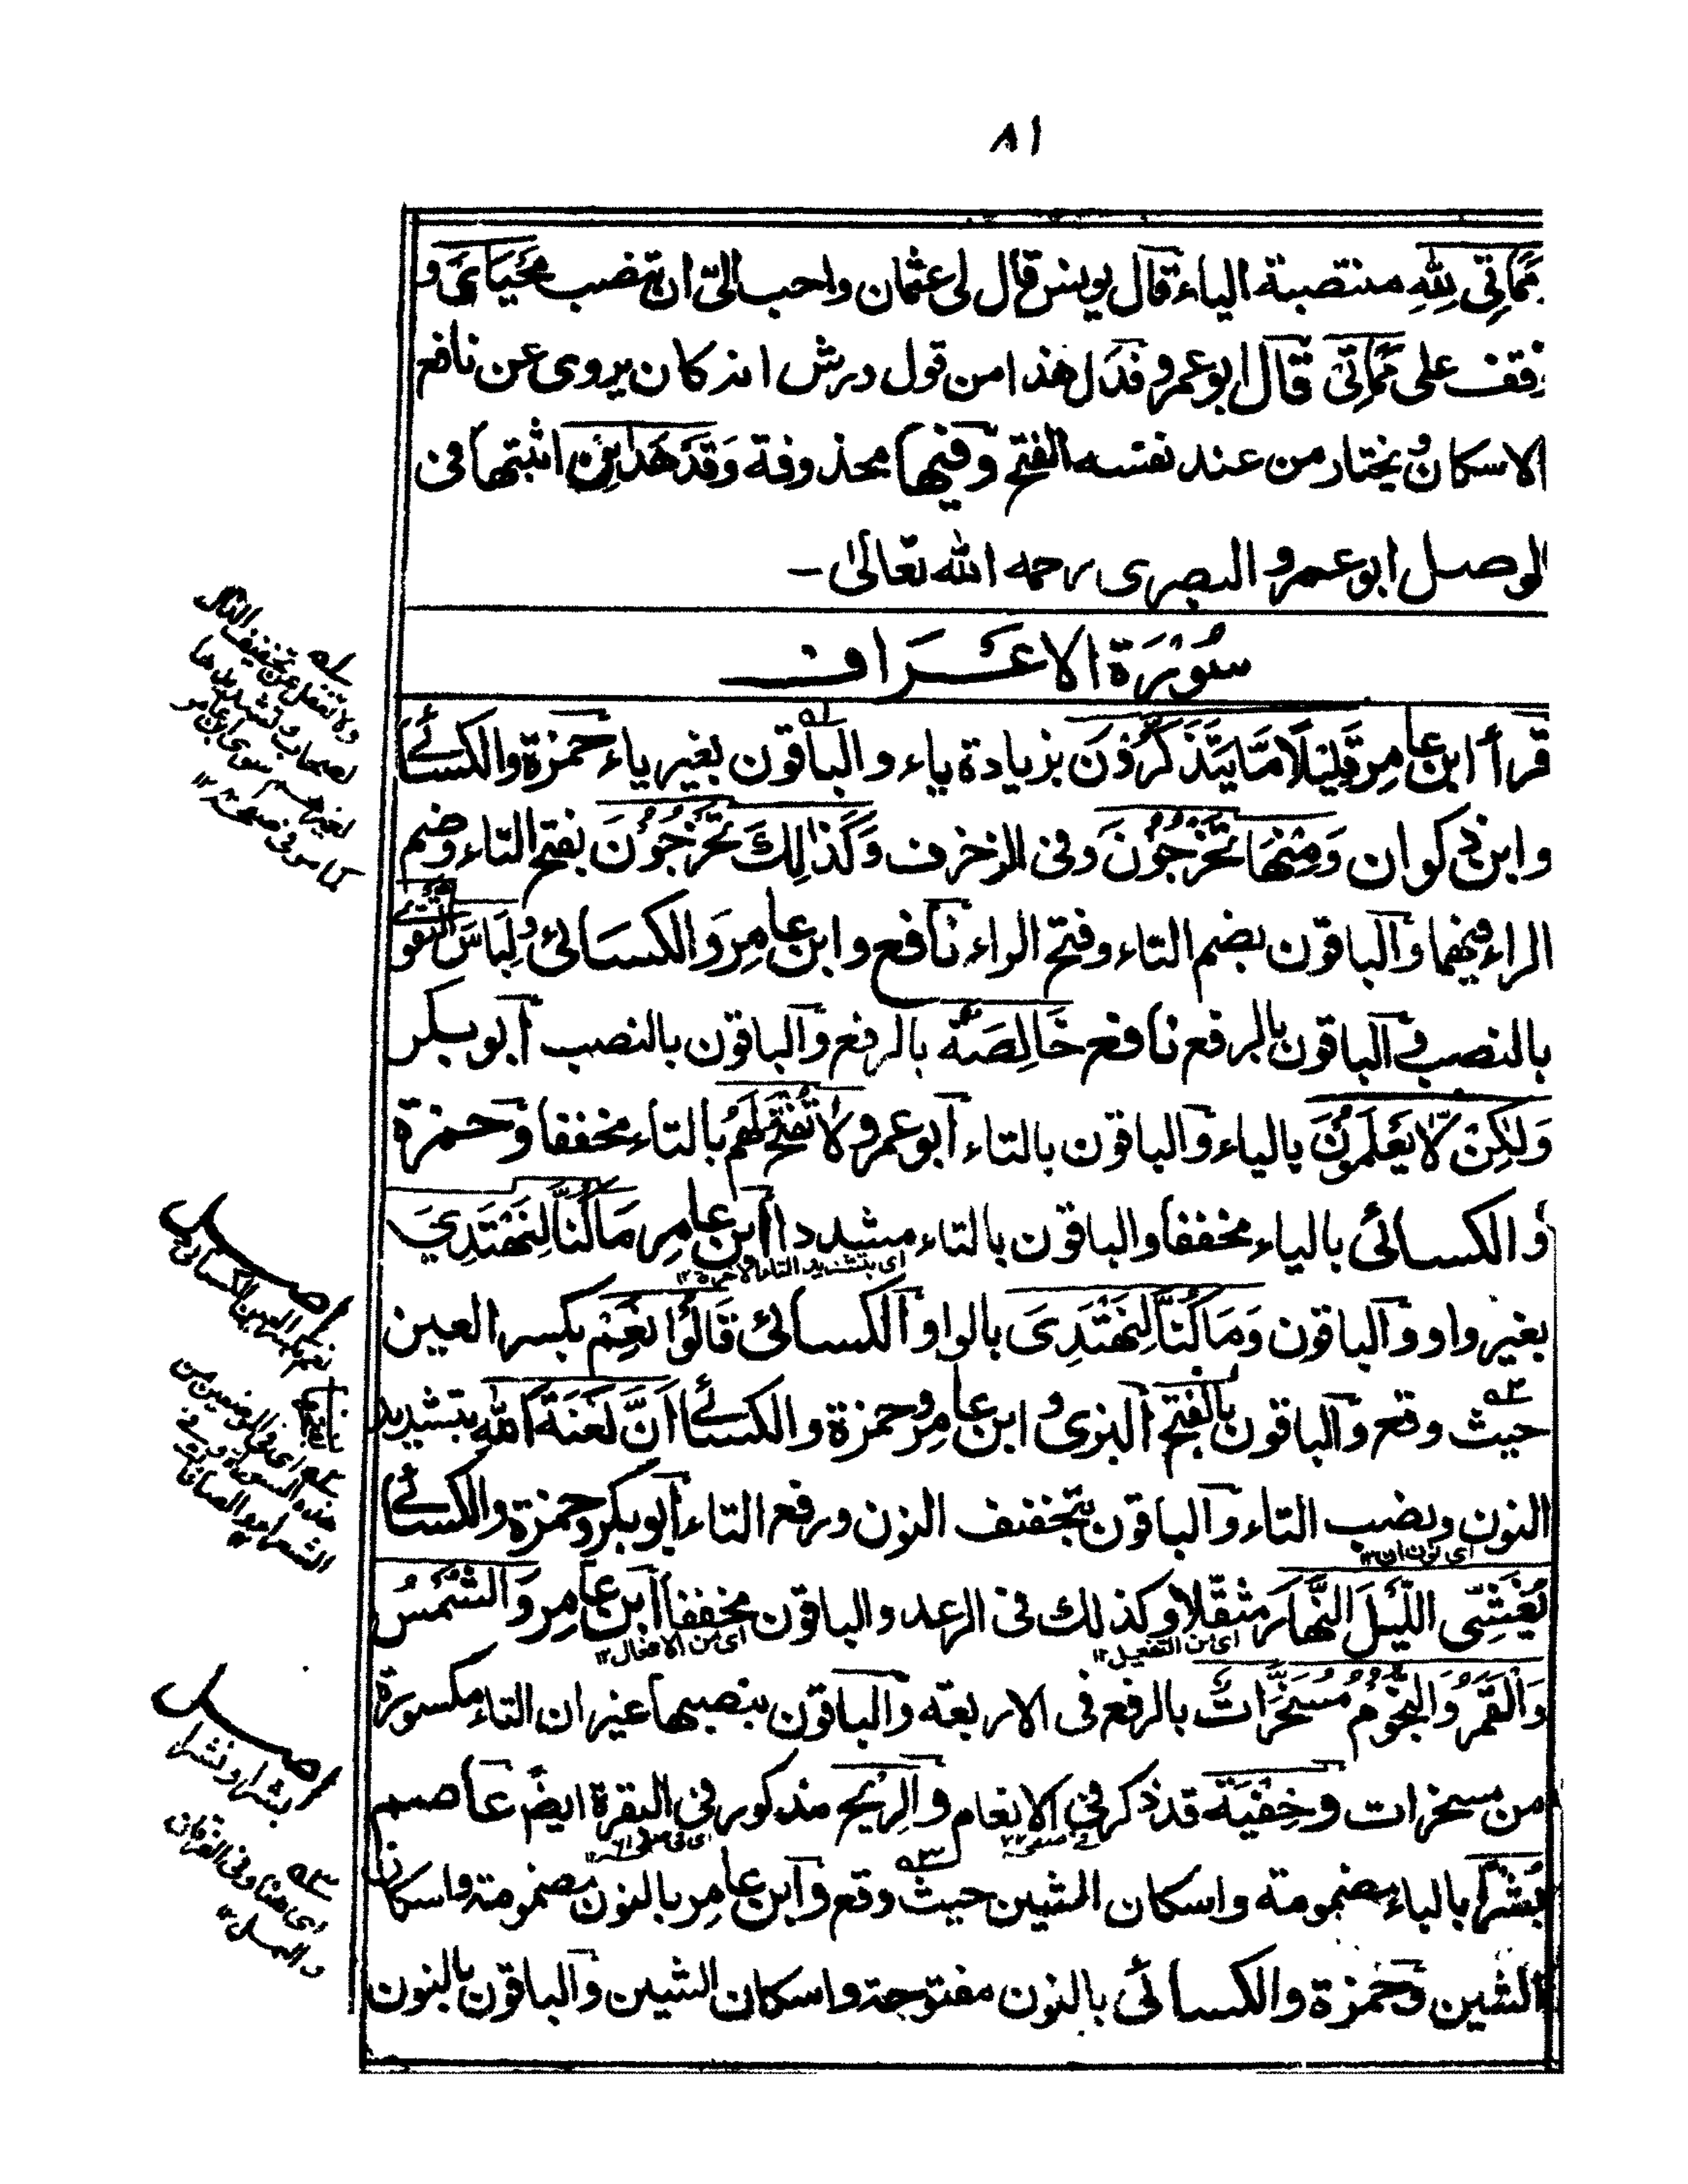 ٨١
مَمَاتِى لِلّٰهِ منتصبة الياء قال يونس قال لى عثمان واحب الىّ ان تنصب مَحْيَاىَ و
تقف على مَمَاتِى قال ابو عمرو فدَل هذا من قول ورش انه كان يروى عن نافع
الاسكان ويختار من عند نفسه الفتح وفيها محذوفة وَقَدْ هَدٰىنِ اثبتها فى
الوصل ابو عمرو البصرى رحمه الله تعالىٰ ـ
سُوْرَةُ الاعْرَاف
قرأ ابن عامِر قَلِيْلًا مَّا يَتَذَكَّرُوْنَ بزيادة ياء والباقون بغير ياء حمزة والكسائے
وابن ذكوان وَمِنْهَا تَخْرُجُوْنَ وفى الزخرف وَكَذٰلِكَ تَخْرُجُوْنَ بفتح التاء وضم
الراء فيهما والباقون بضم التاء وفتح الراء نافع وابن عامِر وَالكسائى وَلِبَاسَ التَّقْوٰے
بالنصب والباقون بالرفع نافع خَالِصَةٌ بالرفع والباقون بالنصب ابو بكر
وَلٰكِنْ لَّا يَعْلَمُوْنَ بالياء والباقون بالتاء ابو عمرو لَا تُفْتَحُ لَهُمْ بالتاء مخففا وحمزة
والكسائى بالياء مخففا والباقون بالتاء مشددا ابن عامِر مَا كُنَّا لِنَهْتَدِىَ
اى بتشديد التاء الاخرة ١٢
بغير واو والباقون وَمَا كُنَّا لِنَهْتَدِىَ بالواو الكسائى قَالُوْا نَعِمْ بكسر العين
حيث وقع والباقون بالفتح البزى وابن عامِر وحمزة والكسائے اَنَّ لَعْنَةَ اللّٰهِ بتشديد
النون ونصب التاء والباقون بتخفيف النون ورفع التاء ابو بكر وحمزة والكسائے
اى نون ان ١٢
يُغَشِّى اللَّيْلَ النَّهَارَ مثقّلا وكذلك فى الرعد والباقون مخففا ابن عامِر وَالشَّمْسُ
اى من التفعيل ١٢ اى من الافعال ١٢
وَالْقَمَرُ وَالنُّجُوْمُ مُسَخَّرَاتٌ بالرفع فى الاربعة والباقون بنصبها غير ان التاء مكسورة
من مسخرات وخِفْيَة قد ذكر فى الانعام والرِيْح مذكور فى البقرة ايضً عاصم
بُشْرًا بالباء مضمومة واسكان الشين حيث وقع وابن عامِر بالنون مضمومة واسكان
الشين وحمزة والكسائى بالنون مفتوحة واسكان الشين والباقون بالنون
ولا تغفل عن تخفيف الذال
لصحاب وتشديدها
لغيرهم سوى ابن عامر
كما مر فى
اصل
نعم بكسر العين الكسائى
اى فى الموضعين من
هذه السورة وفى
الشعراء والصافات
اصل
بشرا ونشرا
اى هنا وفى الفرقان
والنمل ١٢